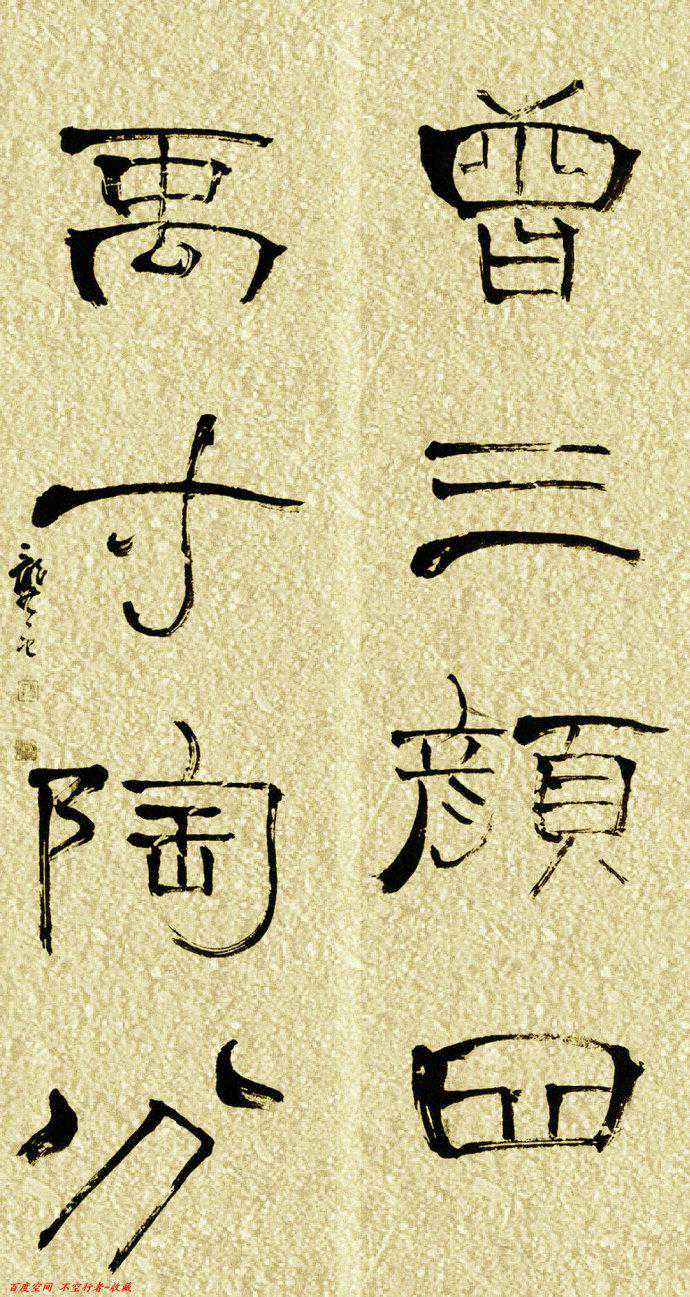 曾三顏四
禹寸陶分
百度空间 不空行者-收藏